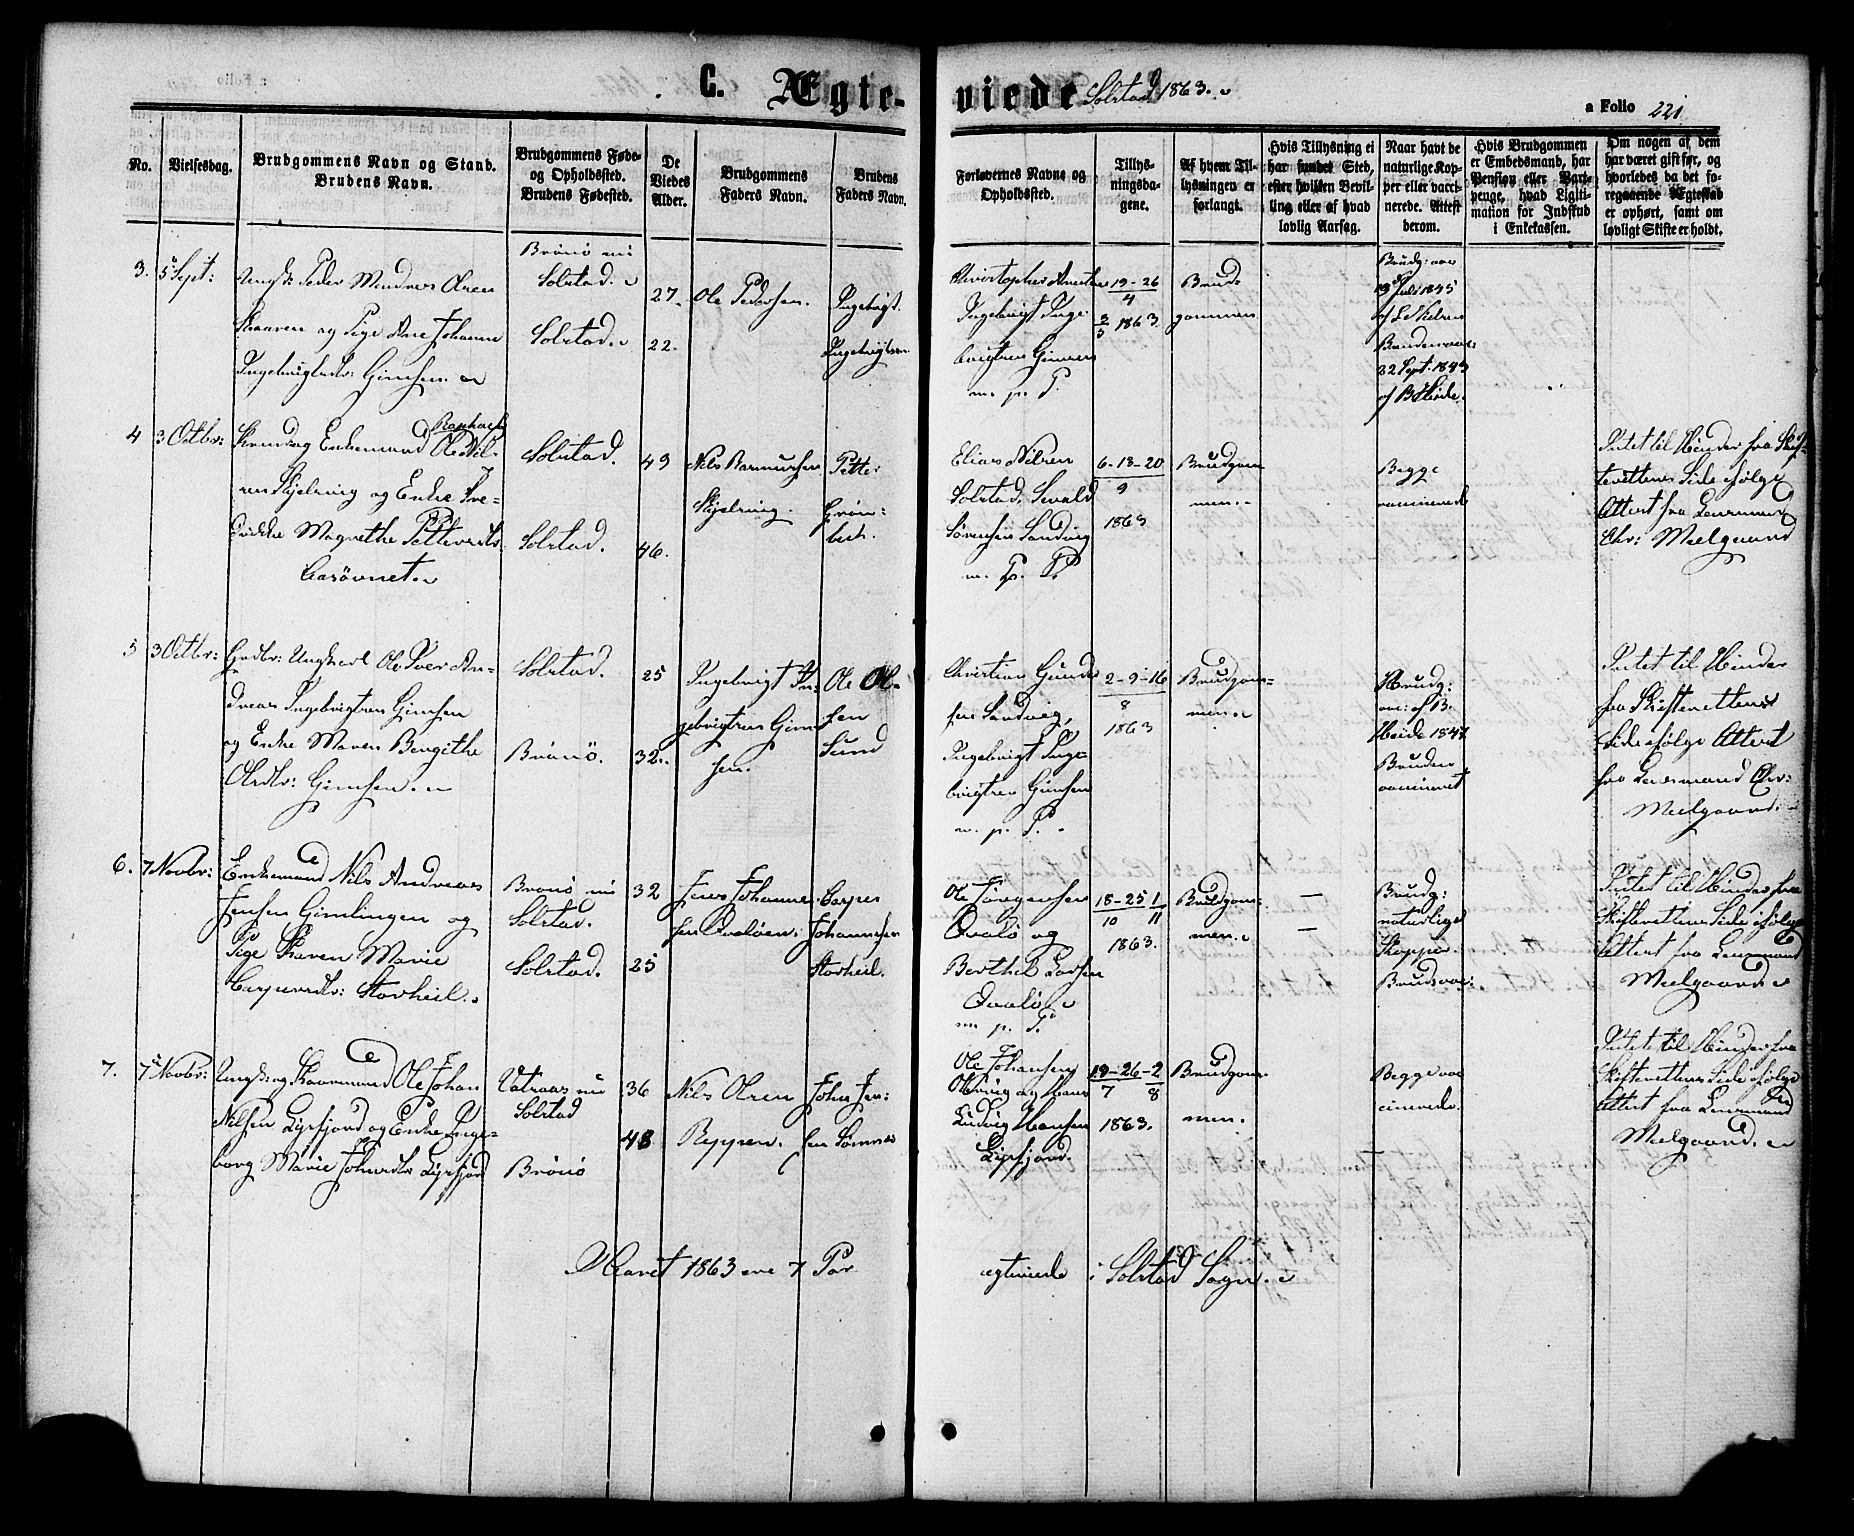 C. Ægte-
viede Solstad 1863.
a Folio 221
No.
Vielsesdag.
Brudgommens Navn og Stand.
Brudens Navn.
Brudgommens Føde-
og Opholdssted.
Brudens Fødested.
De
Viedes
Alder.
Brudgommens
Faders Navn.
Brudens
Faders Navn.
Forlovernes Navne og
Opholdssted.
Tillys-
ningsda-
gene.
Af hvem Til-
lysningen er
forlangt.
Hvis Tillysning ei
har fundet Sted,
efter hvilken Bevil-
ling eller af hvad
lovlig Aarsag.
Naar havt de
naturlige Kop-
per eller vacci-
nerede. Attest
derom.
Hvis Brudgommen
er Embedsmand, har
Pension eller Vart-
penge, hvad Ligiti-
mation for Indskud
i Enkekassen.
Om nogen af dem
har været gift før, og
hvorledes da det fo-
regaaende Ægteskab
er ophørt, samt om
lovligt Skifte er holdt.
3. 5 Sept:
Ungk: Peder Olsen
og Pige Ane Johanne
Ingebrigtsdtr: Gimsen
Brönö nu
Solstad.
Solstad.
27.
22.
Ole Pedersen.
Ingebrigt
Ingebrigtsen
Ingebrigt Inge-
brigtsen Gimsen
m. p. P.
19-26
4
3
5 1863.
Brud-
gommen
Brudg: vac
19 Juli 1845
Bruden vac:
22 Sept. 1843
af B Heide.
4 3 Octbr:
Enkemand Ole Nil-
sen Skjelving og Enke
Magrethe Pettersdtr:
Solstad.
Solstad.
49
46.
Nils Rasmussen
Skjelving.
Petter
Grön-
bech.
Elias Nilsen
Solstad, Sivald
Sörensen Sandvig
m. p. P.
6-13-20
9
1863
Brudgom-
men.
Begge
vaccinerede
Intet til Hinder fra Skif-
terettens Side ifølge
Attest fra Lensmand
Chr: Meelgaard
5 3 Octbr:
Ungkarl Ole Iver An-
dreas Ingebrigtsen Gimsen
og Enke Maren Bergithe
Olsdtr: Gimsen.
Solstad.
Brönö.
25
32.
Ingebrigt In-
gebrigtsen Gim-
sen.
Ole Ol-
sen
Sund
Christian Gunder-
sen Sandvig,
Ingebrigt Inge-
brigtsen Gimsen
m. p. P.
2-9-16
8
1863
Brudgom-
men.
Brudg:
vac: af B.
Heide 1847
Bruden
vaccineret
Intet til Hinder
fra Skifterettens
Side ifølge Attest
fra Lensmand Chr:
Meelgaard.
6. 7 Novbr:
Enkemand Nils Andreas
Jensen Gimlingen og
Pige Karen Marie
Caspersdtr: Storheil.
Brönö nu
Solstad.
Solstad.
32
25
Jens Johanne-
sen Qvalöen.
Casper
Johannesen
Storheil.
Ole Jörgensen
Qvalö og
Berthel Larsen
Qvalö
m. p. P.
18-25 1
10 11
1863.
Brudgom-
men.
—
—
Brudg:
naturlige
Kopper.
Brud vac:
Intet til Hinder fra
Skifterettens Side ifølge
Attest fra Lensmand
Meelgaard
7. 7 Novbr:
Ungk: og Gaardmand Ole Johan
Nilsen Lysfjord og Enke Inge-
borg Marie Johnsdtr: Lysfjord
Vatraas nu
Solstad
Brönö
36
48
Nils Olsen
Reppen.
John Jen-
sen Sömnes
Ole Johansen
og Hans
Ludvig Hansen
Lysfjord.
19-26-2
7 8
1863.
Brudgom-
men.
Begge vac-
cinerede.
Intet til Hinder fra
Skifterettens Side ifølge
Attest fra Lensmand
Meelgaard.
I Aaret 1863 ere 7 Par
ægteviede i Solstad Sogn.